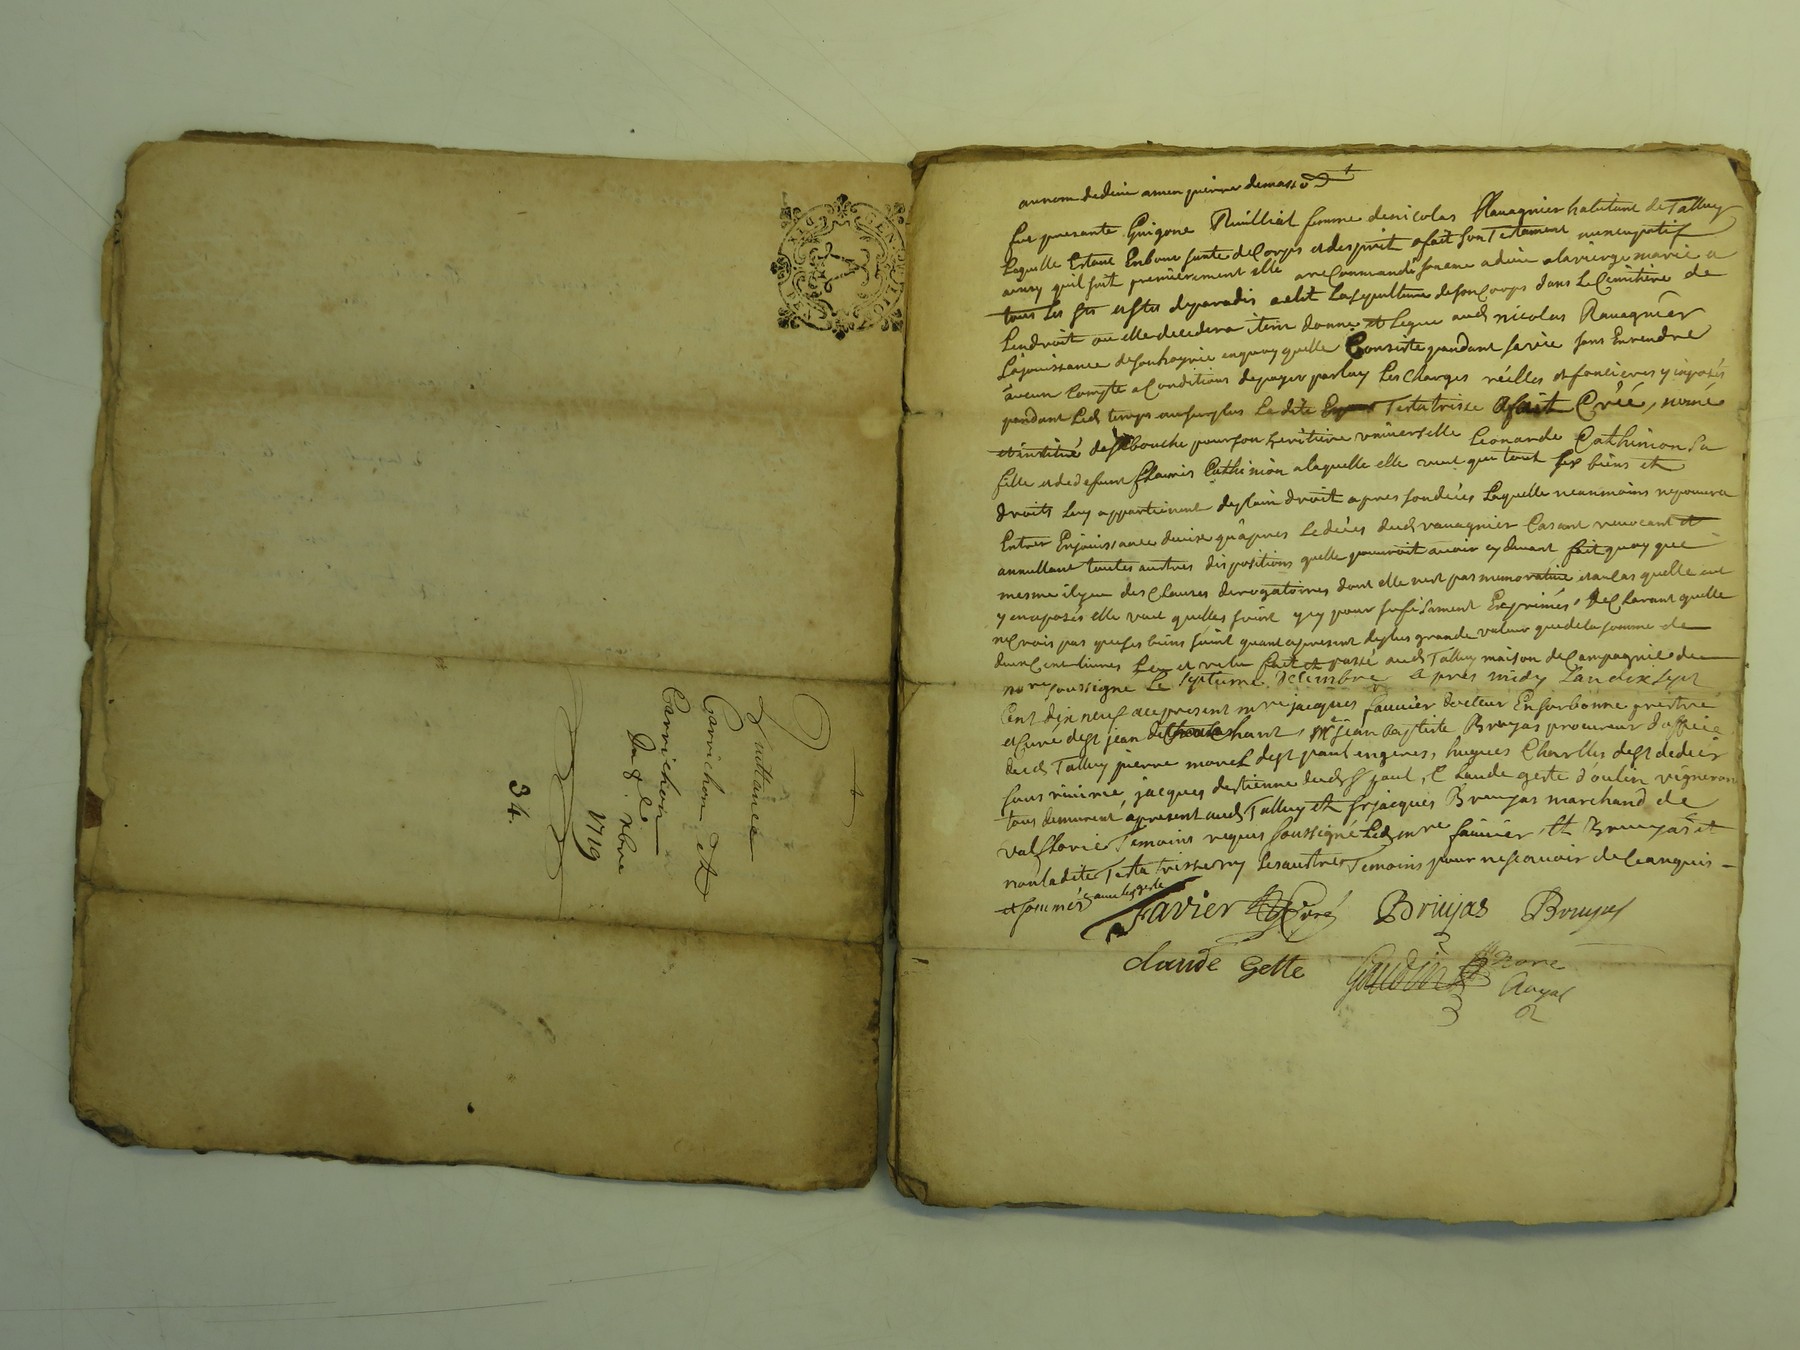 Quittance
Carrichon et
Carrichon
Du 8e xbre
1719
34.
au nom de dieu amen
fut presante Guigone Thuilliat femme de nicolas Ravagnier habitant de Talluy
Laquelle Estant En bonne sante de Corps et desprit a fait son Testament nuncupatif
ainsy quil suit premierement elle a recommandé son ame a dieu a la vierge marie a
tous les sts et stes de paradis a elit La sepulture de son Corps dans Le Cimitiere de
Lendroit ou elle decedera item donne et Legue aud nicolas Ravagnier
La jouissance de son hoyrie en quoy quelle Consiste pendant sa vie sans En rendre
aucun Compte a Conditions de payer par luy Les Charges réelles et foncieres y imposés
pendant Led temps au surplus La dite Testatrisse a fait Créé, nomé
et institué de sa bouche pour son heritiere universelle Leonarde Cathinion sa
fille et de defunt fleuris Cathinion a laquelle elle veut que tout ses biens et
droits Luy appartienent de plain droit apres son decés Laquelle neanmoins ne pourra
Entrer En jouissance diceux qu'apres Le decés dud ravagnier Cassant revocant et
annullant toutes autres dispositions quelle pourroit avoir cy devant fait quoy que
mesme il y eu des Clauses derogatoires dont elle nest pas memorative et au cas quelle eut
y en aposés elle veut quelles soint icy pour sufisament Exprimés, declarant quelle
ne Crois pas que ses biens soint quant apresent de plus grande valeur que de la somme de
deux Cent livres Leu et relu fait et passé aud Talluy maison de Campagnie du
nore soussigné Le septieme decembre apres midy Lan dix sept
Cent dix neuf avec present mre jacques favier docteur En sorbonne prestre
et Curé de st jean de Chant, Mr jean baptiste Brujas procureur doffice
dud Talluy pierre morel de st paul en jeres, hugues Charles de st didier
sous rivirie, jacques destienne dud st paul, Claude geste d'oulin vigneron
tous demeurent apresent aud Talluy et sr jacques Brujas marchand de
valflorie Temoins requis soussigné Led mre favier et Brujas et
non la dite Testatrisse ny Les autres Temoins pour ne scavoir de Ce enquis
et sommés avec led geste
Favier Curé Brujas Brujas
claude Gette Gaudin Nore
Royal